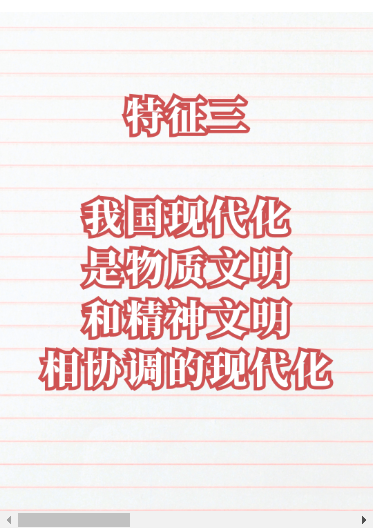 特征三
我国现代化
是物质文明
和精神文明
相协调的现代化